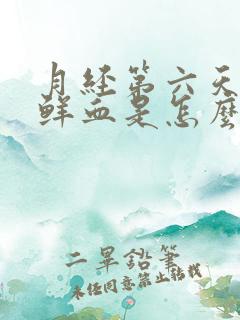 月经第六天
鲜血是怎麽
二畢鉛筆
未经同意禁止转载